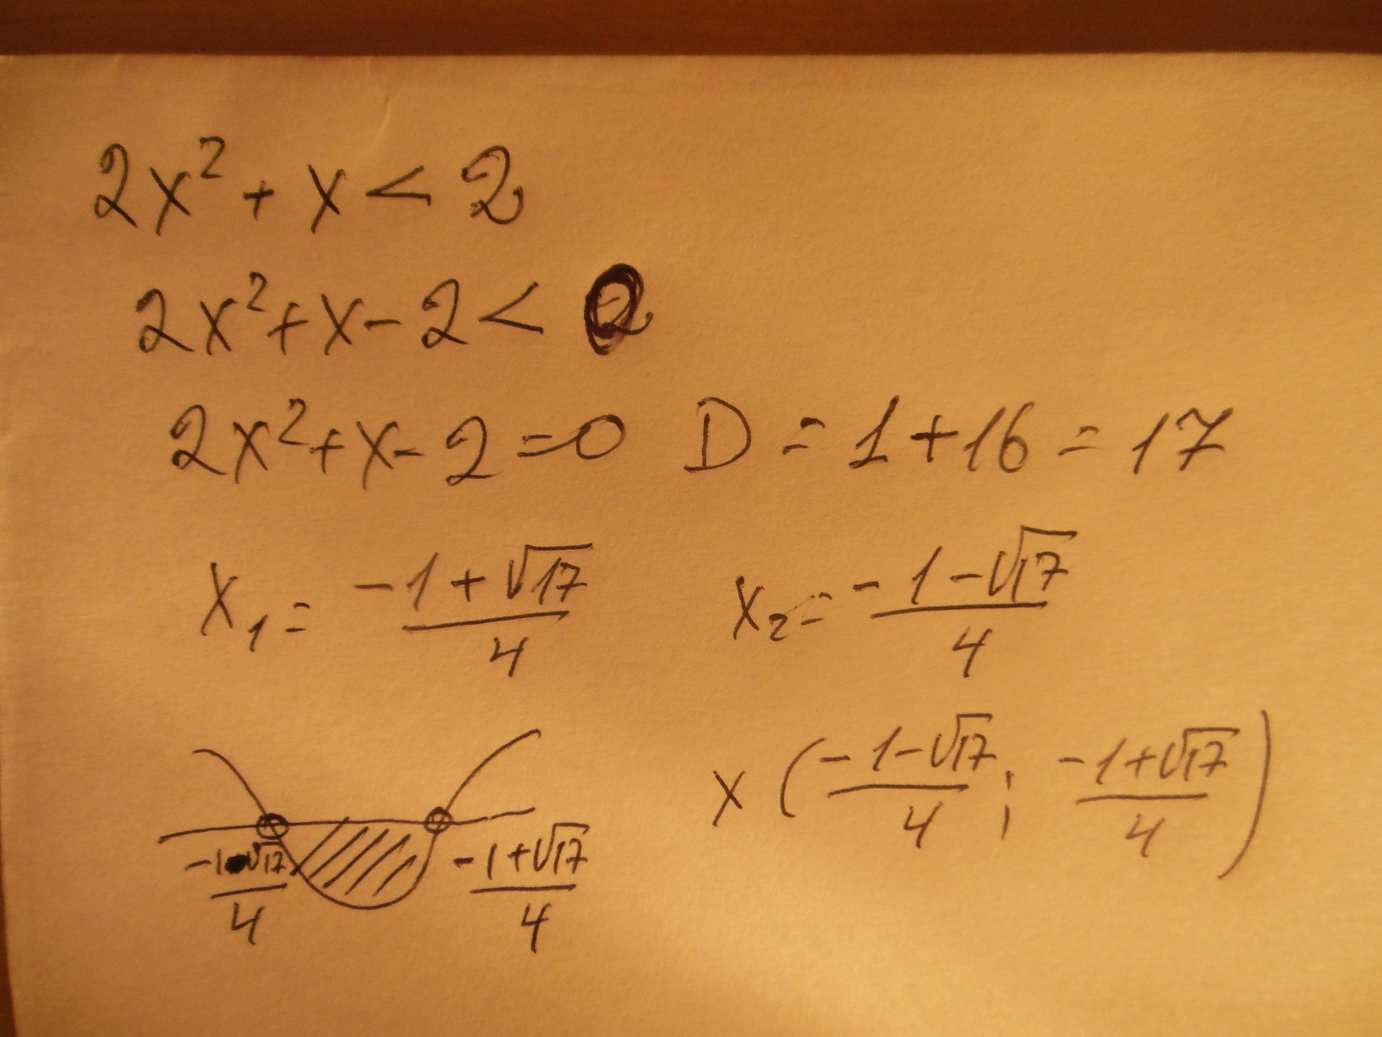 2x² + x < 2
2x² + x - 2 < 0
2x² + x - 2 = 0 D = 1 + 16 = 17
x₁ = (-1 + √17)/4 x₂ = (-1 - √17)/4
x ((-1 - √17)/4 ; (-1 + √17)/4)
(-1 - √17)/4 (-1 + √17)/4